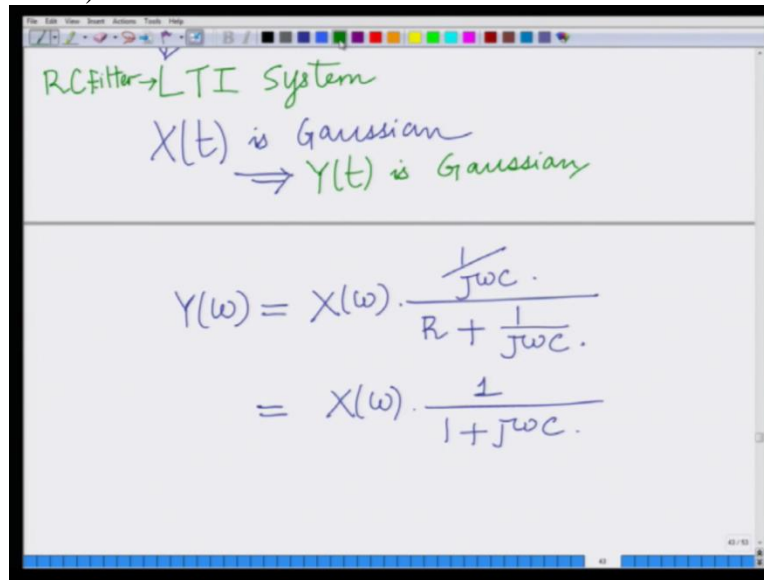 File Edit View Insert Actions Tools Help
RC Filter → LTI System
X(t) is Gaussian
⟹ Y(t) is Gaussian
Y(ω) = X(ω) · (1/jωC) / (R + 1/jωC)
= X(ω) · 1 / (1 + jωC)
43/53
43